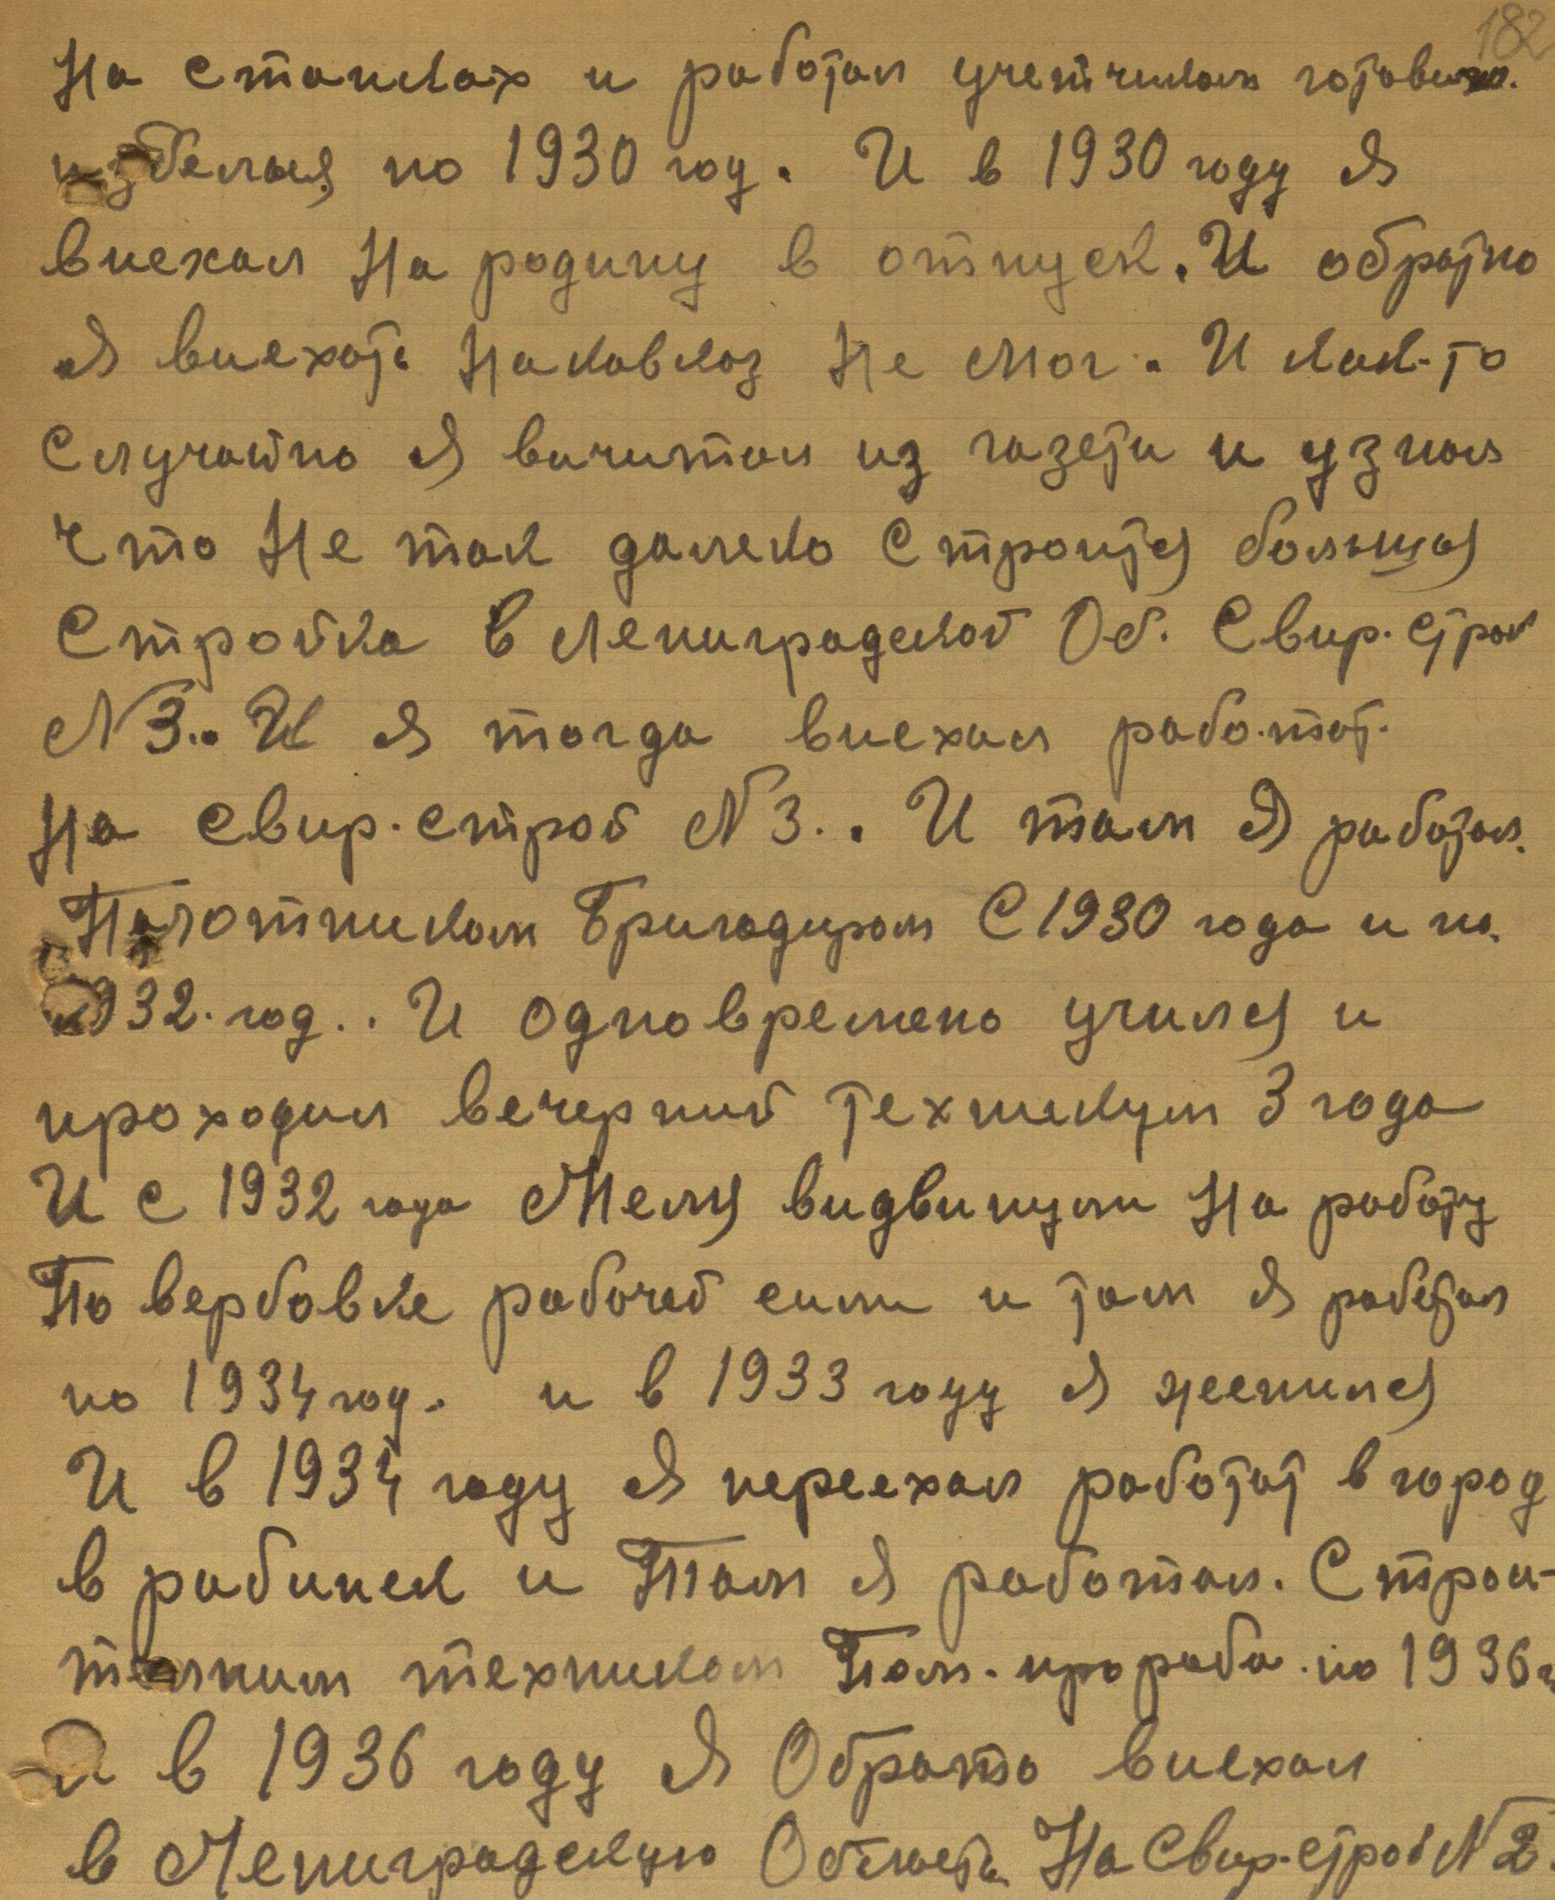 182
На станках и работал учетчиком готовых.
избелия, по 1930 год. И в 1930 году я
виехал На родину в отпуск. И обратно
я виехать Накавказ Не мог. И как-то
Случайно я вичитал из газети и узнал
что Не так далеко Строится большая
Стройка в Ленинградской Об. Свир. строй
N 3.. И я тогда виехал работат.
На свир. строй N 3.. И там Я работал.
Полотником Бригадиром С 1930 года и по.
1932. год.. И одновремено учился и
проходил вечерний техникум 3 года
И с 1932 года Меня видвинули На работу
По вербовке рабочей сили и там я работал
по 1934 год. и в 1933 году я женился
И в 1934 году я переехал работат в город
в рабинск и Там я работал. Строи-
телним техником Пом. прораба. по 1936 г.
И в 1936 году я Обратно виехал
в Ленинградскую Область На Свир. строй N 2.